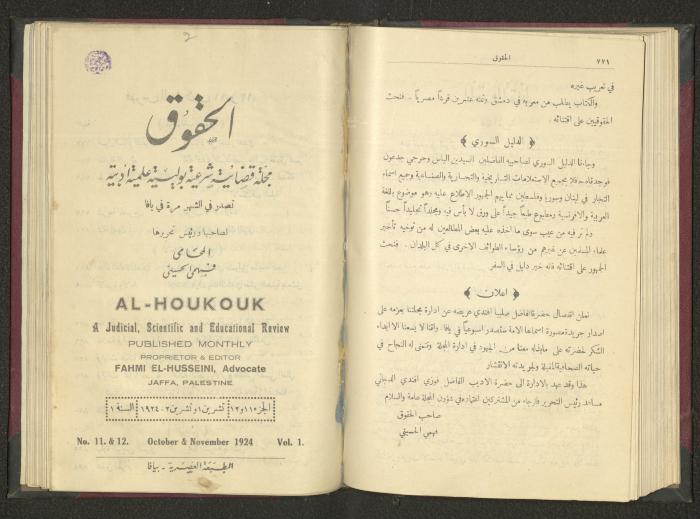 2
الحقوق
مجلة قضائية شرعية بوليسية علمية ادبية
تصدر في الشهر مرة في يافا
لصاحبها ورئيس تحريرها
المحامي
فهمي الحسيني
AL-HOUKOUK
A Judicial, Scientific and Educational Review
PUBLISHED MONTHLY
PROPRIETOR & EDITOR
FAHMI EL-HUSSEINI, Advocate
JAFFA, PALESTINE
الجزء ١١ و ١٢ تشرين ١ و تشرين ٢ - ١٩٢٤ السنة ١
No. 11. & 12. October & November 1924 Vol. 1.
المطبعة العصرية - بيافا
٧٧٦ الحقوق
في تعريب غيره
والكتاب يطلب من معربه في دمشق وثمنه عشرين قرشاً مصرياً . فنحث
الحقوقيين على اقتنائه .
﴿ الدليل السوري ﴾
وجاءنا الدليل السوري لصاحبيه الفاضلين السيدين الياس وجرجي جدعون
فوجدناه حافلا بجميع الاستعلامات التاريخية والتجارية والصناعية وجميع اسماء
التجار في لبنان وسوريا وفلسطين مما يهم الجمهور الاطلاع عليه وهو موضوع باللغة
العربية والافرنسية ومطبوع طبعاً جيداً على ورق لا بأس فيه ومجلداً تجليداً حسناً
ولم نر فيه من عيب سوى ما اخذه عليه بعض المطالعين له من توخيه تأخير
علماء المسلمين عن غيرهم من رؤساء الطوائف الاخرى في كل البلدان . فنحث
الجمهور على اقتنائه فانه خير دليل في السفر
﴿ اعلان ﴾
نعلن انفصال حضرة الفاضل صليبا افندي عريضه عن ادارة مجلتنا بعزمه على
اصدار جريدة مصورة اسماها الامة ستصدر اسبوعياً في يافا . واننا لا يسعنا الا ابداء
الشكر لحضرته على مابذله معنا من الجهود في ادارة المجلة ونتمنى له النجاح في
حياته الصحافية المقبلة ولجريدته الانتشار
هذا وقد عهد بالادارة الى حضرة الاديب الفاضل فوزي افندي الدجاني
مساعد رئيس التحرير فالرجاء من المشتركين اعتماده في شؤون المجلة عامة والسلام
صاحب الحقوق
فهمي الحسيني